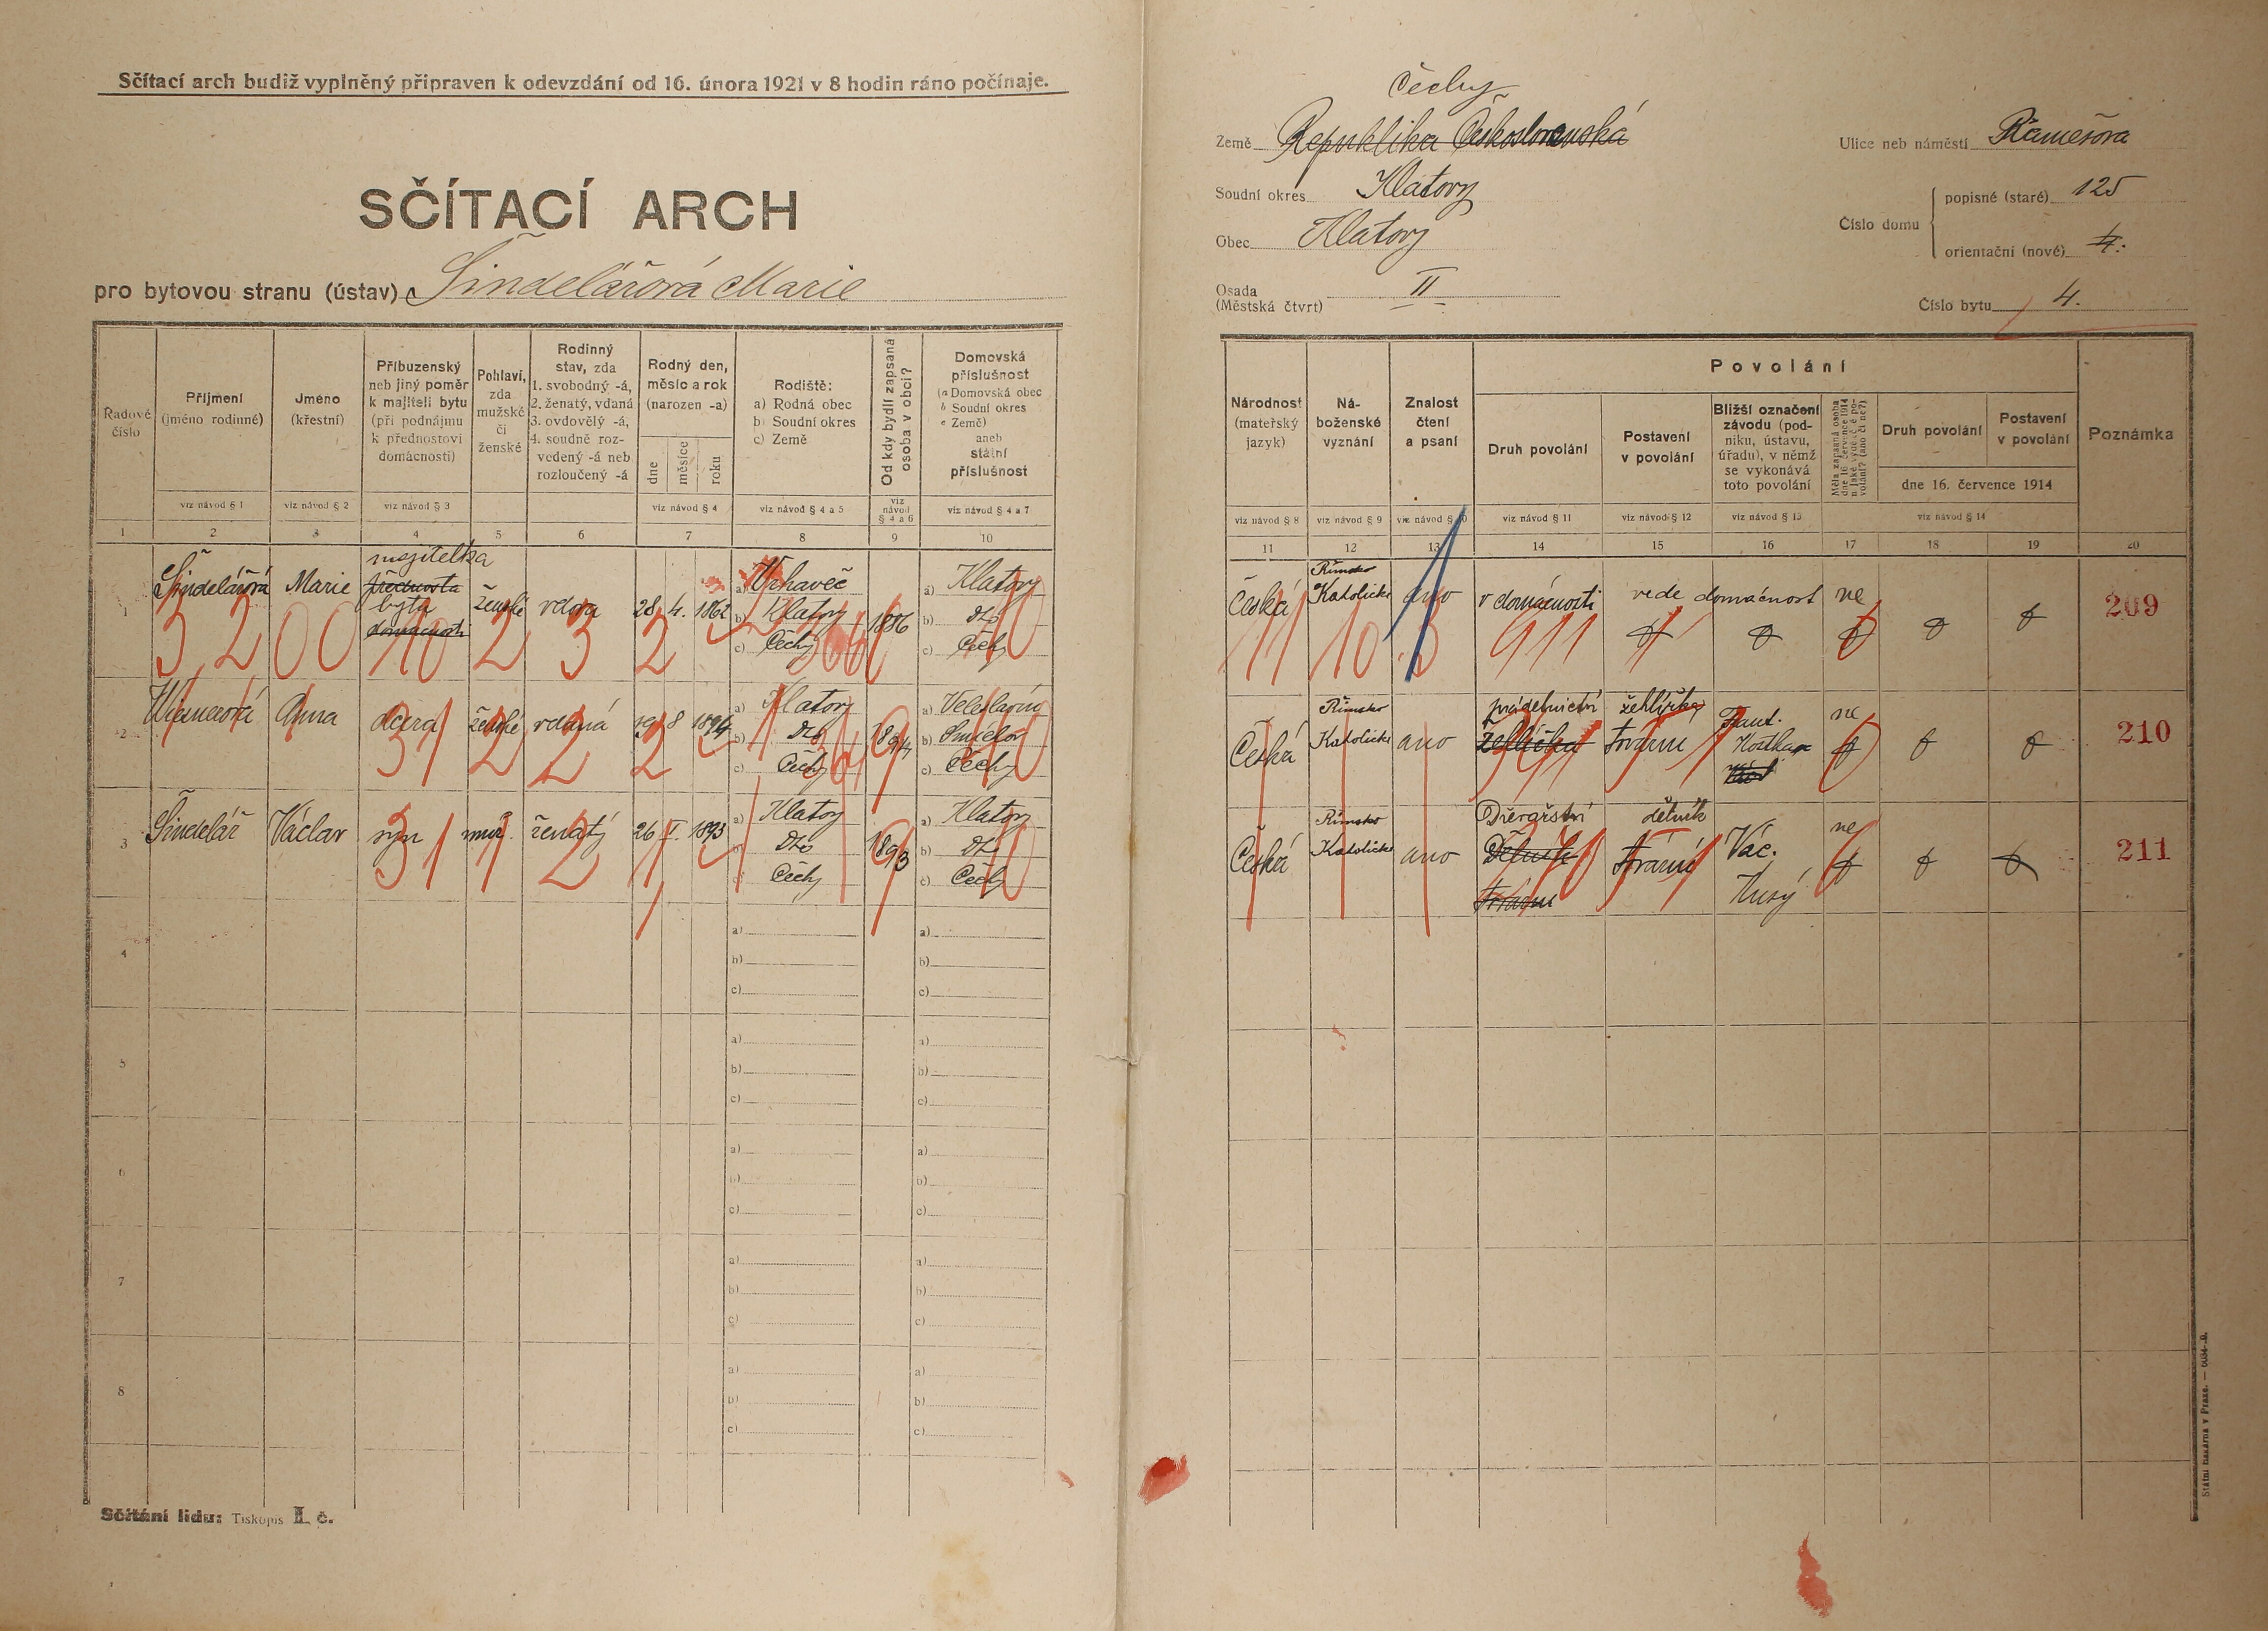 Sčítací arch budiž vyplněný připraven k odevzdání od 16. února 1921 v 8 hodin ráno počínaje.
SČÍTACÍ ARCH
pro bytovou stranu (ústav) Šindelářová Marie
Čechy
Země Republika Československá
Soudní okres Klatovy
Obec Klatovy
Osada (Městská čtvrt) II
Ulice neb náměstí
Číslo domu
popisné (staré) 125
orientační (nové) 4.
Číslo bytu 4.
Řadové číslo
Příjmení (jméno rodinné)
Jméno (křestní)
Příbuzenský neb jiný poměr k majiteli bytu (při podnájmu k přednostovi domácnosti)
Pohlaví, zda mužské či ženské
Rodinný stav, zda 1. svobodný -á, 2. ženatý, vdaná 3. ovdovělý -á, 4. soudně rozvedený -á neb rozloučený -á
Rodný den, měsíc a rok (narozen -a)
dne měsíce roku
Rodiště: a) Rodná obec b) Soudní okres c) Země
Od kdy bydlí zapsaná osoba v obci?
Domovská příslušnost (a Domovská obec b Soudní okres c Země) aneb státní příslušnost
Národnost (mateřský jazyk)
Náboženské vyznání
Znalost čtení a psaní
Povolání
Druh povolání
Postavení v povolání
Bližší označení závodu (podniku, ústavu, úřadu), v němž se vykonává toto povolání
Druh povolání
Postavení v povolání
dne 16. července 1914
Poznámka
viz návod § 1 viz návod § 2 viz návod § 3 viz návod § 4 viz návod § 4 a 5 viz návod § 4 a 6 viz návod § 4 a 7
viz návod § 8 viz návod § 9 viz návod § 10 viz návod § 11 viz návod § 12 viz návod § 13 viz návod § 14
1 2 3 4 5 6 7 8 9 10
11 12 13 14 15 16 17 18 19 20
1 Šindelářová Marie majitelka přednosta bytu domácnosti ženské vdova 28 4. 1862 a) Vrhaveč b) Klatovy c) Čechy 1886 a) Klatovy b) Dto c) Čechy
Česká Římsko Katolické ano v domácnosti vede domácnost ne 209
3 2 00 10 2 3 2
11 10 3 911
2 Anna dcera ženské vdaná 8 1894 a) Klatovy b) Dto c) Čechy 1894 a) Veleslavín b) Smíchov c) Čechy
Česká Římsko Katolické ano prádelnictví žehlířka ne 210
31 2 2 2
3 Šindelář Václav syn muž. ženatý 26 I. 1893 a) Klatovy b) Dto c) Čechy 1893 a) Klatovy b) Dto c) Čechy
Česká Římsko Katolické ano dělník Vác. ne 211
31 1 2 1
4 a) b) c) a) b) c)
5 a) b) c) a) b) c)
6 a) b) c) a) b) c)
7 a) b) c) a) b) c)
8 a) b) c) a) b) c)
Sčítání lidu: Tiskopis I. č.